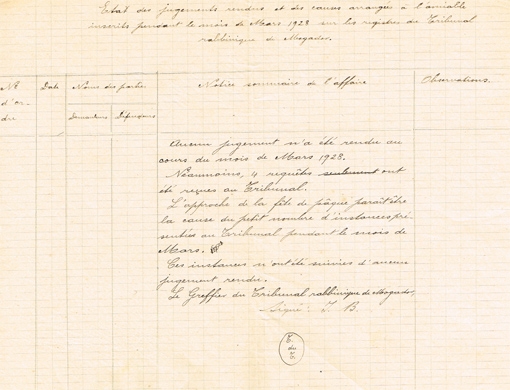 Etat des jugements rendus et des causes arrangées à l'amiable
inscrits pendant le mois de Mars 1928 sur les registres du Tribunal
rabbinique de Mogador.
Nº d'or-dre
Date
Noms des parties
Demandeurs
Défendeurs
Notice sommaire de l'affaire
Observations.
Aucun jugement n'a été rendu au
cours du mois de Mars 1928.
Néaumoins, 4 requêtes seulement ont
été reçues au Tribunal.
L'approche de la fête de pâque paraît être
la cause du petit nombre d'instances pré-
sentées au Tribunal pendant le mois de
Mars.
Ces instances n'ont été suivies d'aucun
jugement rendu.
Le Greffier du Tribunal rabbinique de Mogador,
Signé: J. B.